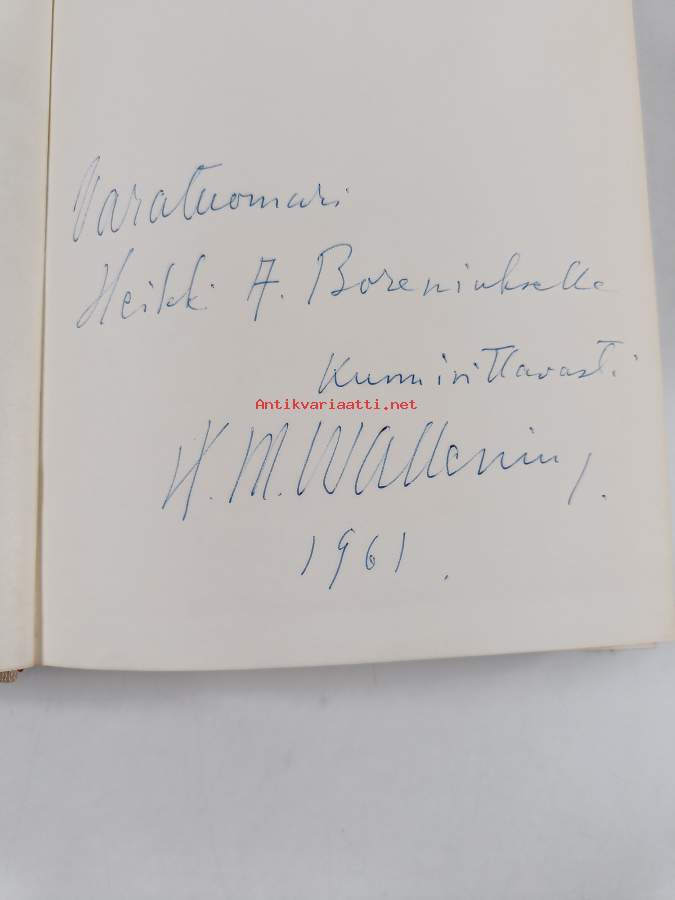 Varatuomari
Heikki A. Boreniukselle
Kunnioittavasti
Antikvariaatti.net
K. M. Wallenius.
1961.